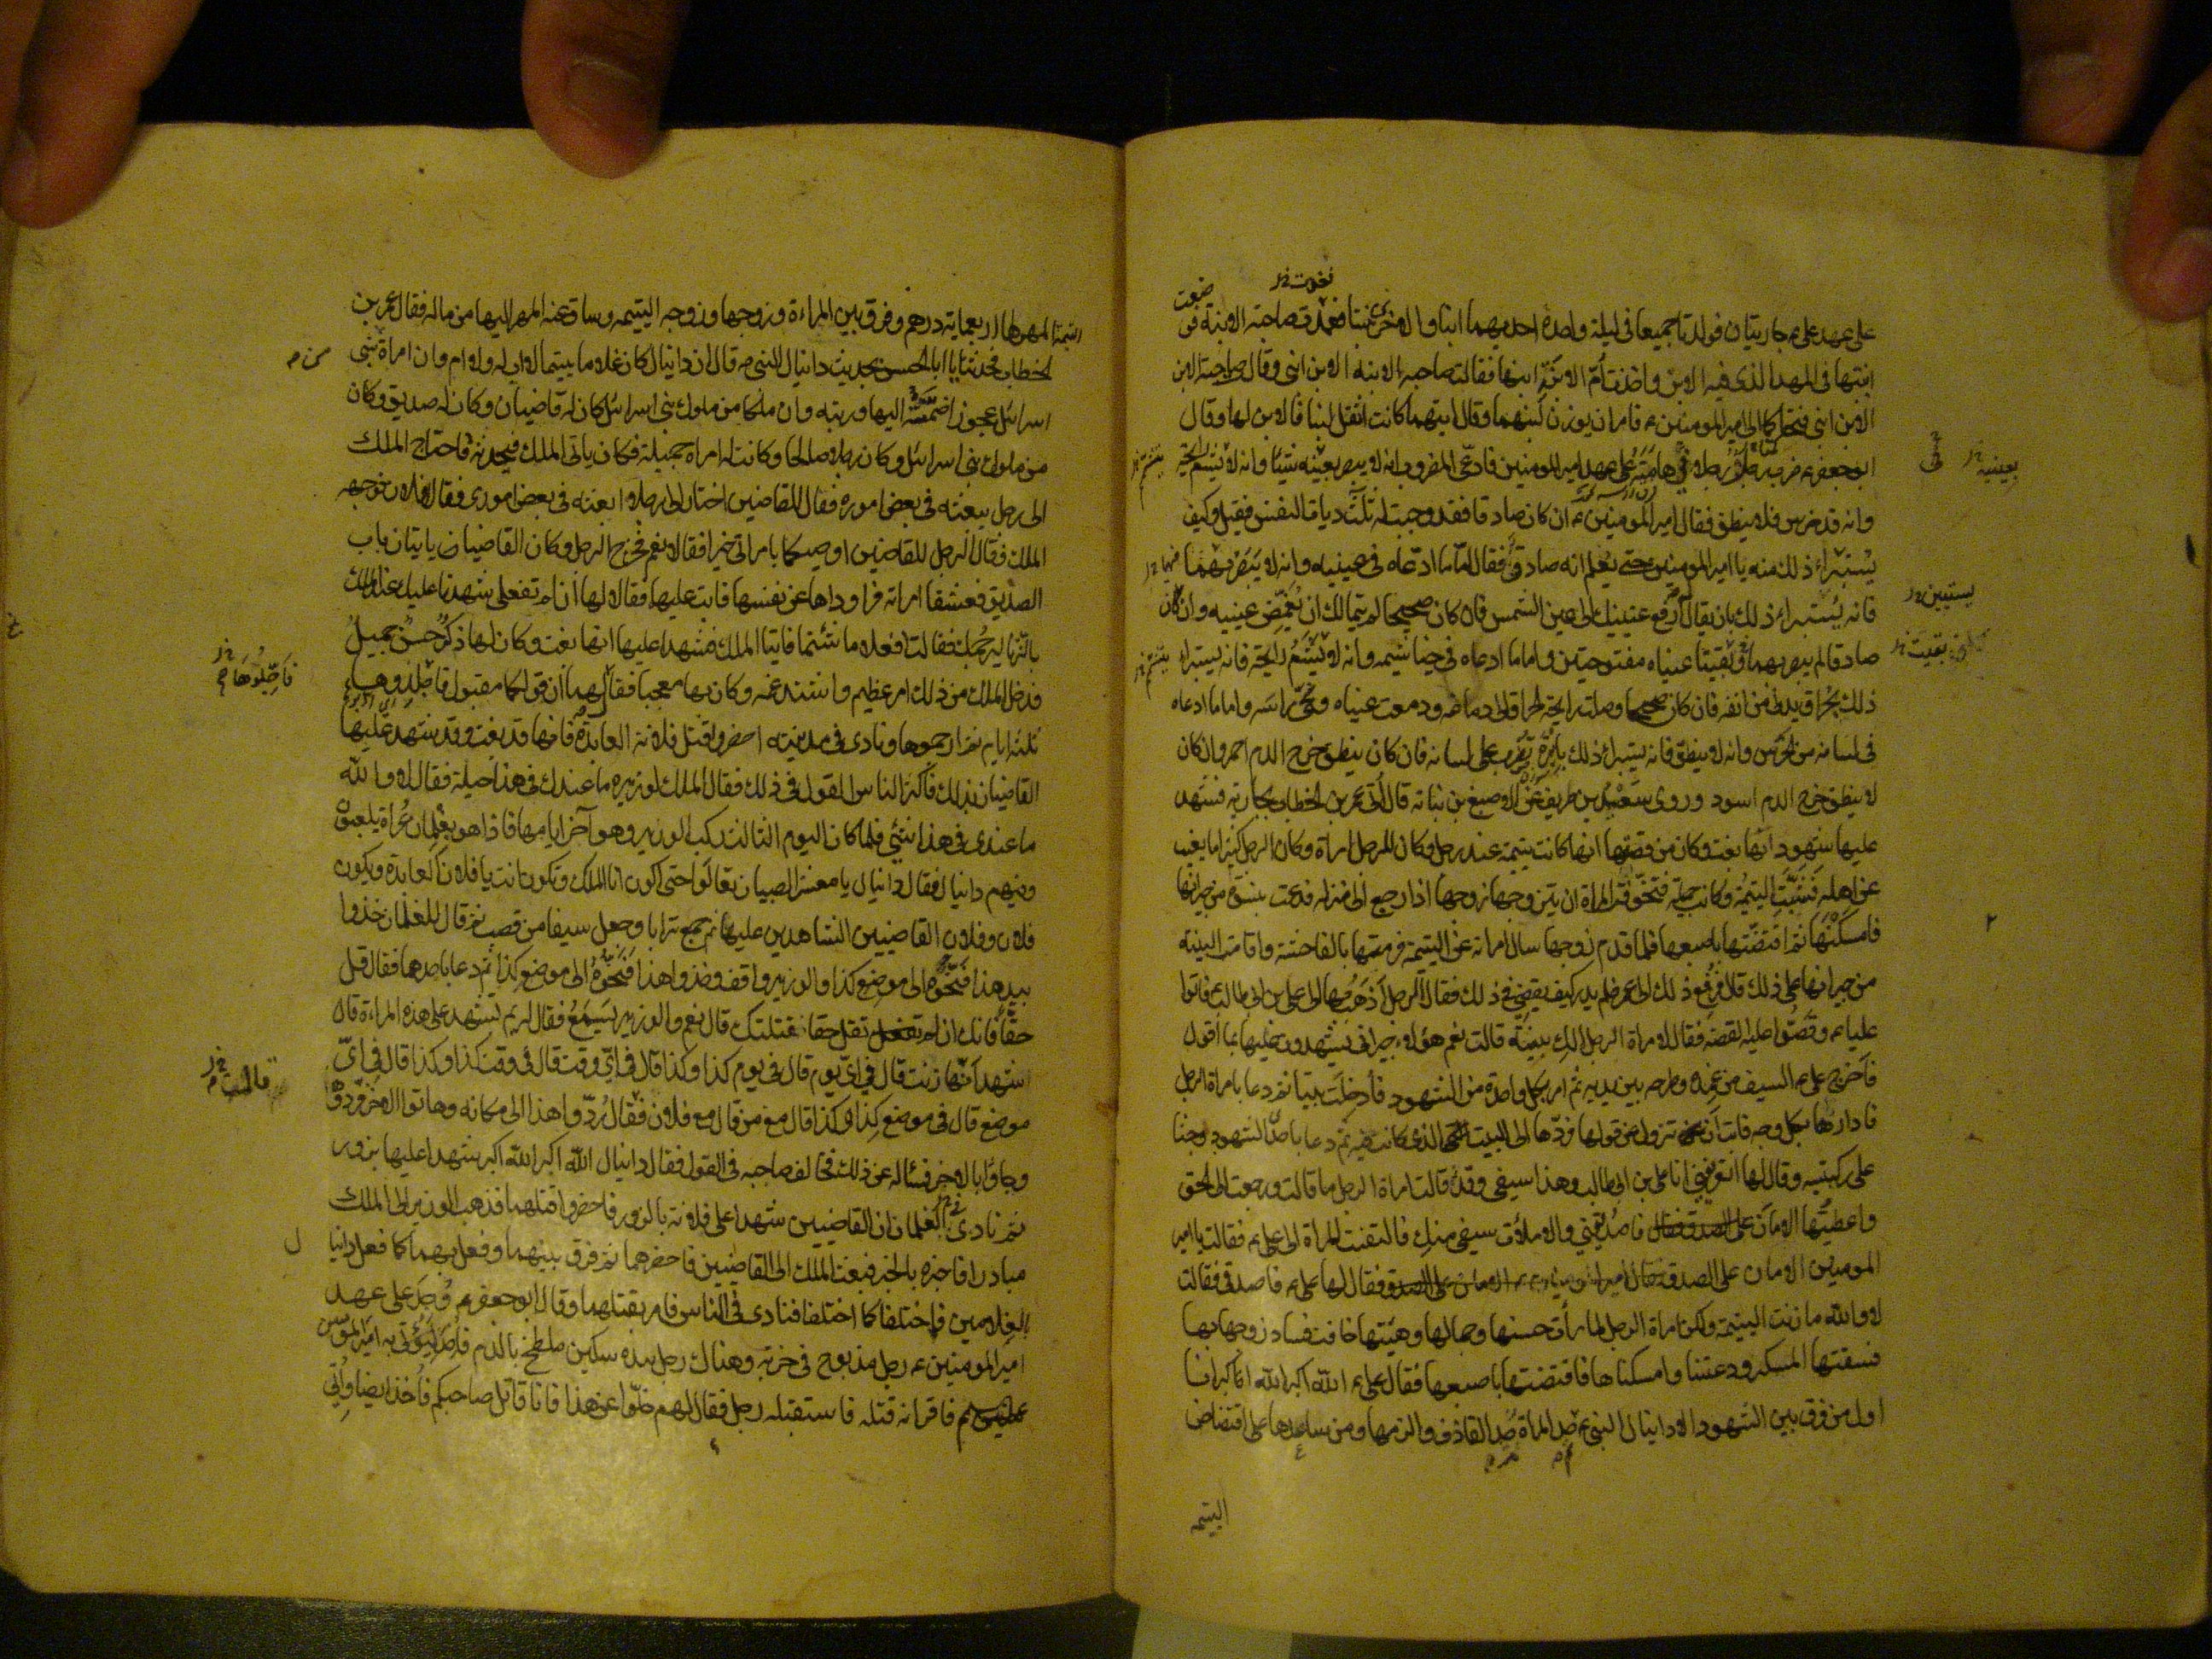 على عهد على ع جاريتان فولدتا جميعا فى ليلة واحدة احديهما ابنا والاخرى بنتا فعدت صاحبة الابنة فى
ابنتها فى المهد الذى فيه الابن واخذت أم الابنة ابنها فقالت صاحبه الابنه الابن ابنى وقال صاحبة الابن
الابن ابنى فتحاكما الى امير المومنين ع فامر ان يوزن لبنهما وقال ايتهما كانت اثقل لبنا فالابن لها وقال
ابو جعفر ع ضرب رجل رجلا فى هامته على عهد امير المومنين فادعى المضروب انه لا يبصر بعينه شيئا وانه لا يشم رايحة
وانه قد خرس فلا ينطق فقال امير المومنين ع ان كان صادقا فقد وجبت له ثلث ديات النفس فقيل وكيف
يستبراء ذلك منه يا امير المومنين حتى يعلم انه صادق فقال اما ما ادعاه فى عينيه وانه لا يبصر بهما
فانه يستبراء ذلك بان يقال له ارفع عينيك الى عين الشمس فان كان صحيحا لم يتمالك ان يغمض عينيه وان كان
صادقا لم يبصر بهما وبقيتا عيناه مفتوحتين واما ما ادعاه فى خياشيمه وانه لا يشم رايحة فانه يستبراء
ذلك بحراق يدنى من انفه فان كان صحيحا وصلت رايحة الحراق الى دماغه ودمعت عيناه ونحى راسه واما ما ادعاه
فى لسانه من الخرس وانه لا ينطق فانه يستبراء ذلك بابرة تضرب على لسانه فان كان ينطق خرج الدم احمر وان كان
لا ينطق خرج الدم اسود وروى سعد بن طريف عن الاصبغ بن نباته قال أتى عمر بن الخطاب بجارية فشهد
عليها شهود انها بغت وكان من قصتها انها كانت يتيمة عند رجل وكان للرجل امراة وكان الرجل كثيرا ما يغيب
عن اهله فشبت اليتيمة وكانت جميلة فتخوفت المراة ان يتزوجها زوجها اذا رجع الى منزله فدعت بنسوة من جيرانها
فامسكنها ثم افتضتها باصبعها فلما قدم زوجها سال امراته عن اليتيمة فرمتها بالفاحشة واقامت البينه
من جيرانها على ذلك قال فرفع ذلك الى عمر فلم يدر كيف يقضى فى ذلك فقال للرجل اذهب بها الى على بن ابى طالب ع فاتوا
عليا ع وقصوا عليه القصة فقال لامراة الرجل الك بينة قالت نعم هؤلاء جيرانى يشهدون عليها بما اقول
فاخرج على ع السيف من غمده وطرحه بين يديه ثم امر بكل واحدة من الشهود فأدخلت بيتا ثم دعا بامراة الرجل
فادارها بكل وجه فابت ان تزول عن قولها فردها الى البيت الذى كانت فيه ثم دعا باحدى الشهود وجثا
على ركبتيه وقال لها اتعرفينى انا على بن ابى طالب وهذا سيفى وقد قالت امراة الرجل ما قالت ورجعت الى الحق
واعطيتها الامان فاصدقينى والا ملأت سيفى منك فالتفتت المراة الى على ع فقالت يا امير
المومنين الامان على الصدق فقال لها على ع فاصدقى فقالت
لا والله ما زنت اليتيمة ولكن امراة الرجل لما رأت حسنها وجمالها وهيئتها خافت فساد زوجها بها
فسقتها المسكر ودعتنا وامسكناها فافتضتها باصبعها فقال على ع الله اكبر الله اكبر انا
اول من فرق بين الشهود الا دانيال النبى ع حد المراة حد القاذف والزمها ومن ساعدها على افتضاض
اليتيمه
نخ بعينيه
يستبين
بقيت
اليتيمة المهر لها اربعماية درهم وفرق بين المراءة وزوجها وزوجه اليتيمه وساق عنه المهر اليها من ماله فقال عمر بن
الخطاب فحدثنا يا ابا الحسن بحديث دانيال النبى ع قال ان دانيال كان غلاما يتيما لا اب له ولا ام وان امراة من بنى
اسرائيل عجوزا ضمته اليها وربته وان ملكا من ملوك بنى اسرائيل كان له قاضيان وكان له صديق وكان
من ملوك بنى اسرائيل وكان رجلا صالحا وكانت له امراة جميلة فكان ياتى الملك فيحدثه فاحتاج الملك
الى رجل يبعثه فى بعض اموره فقال للقاضيين اختارا لى رجلا ابعثه فى بعض امورى فقالا فلان فوجهه
الملك فقال الرجل للقاضيين اوصيكما بامراتى خيرا فقالا نعم فخرج الرجل وكان القاضيان ياتيان باب
الصديق فعشقا امراته فراوداها عن نفسها فابت عليهما فقالا لها ان لم تفعلى شهدنا عليك عند الملك
بالزنا ليرجمك فقالت افعلا ما شئتما فاتيا الملك فشهدا عليها انها بغت وكان لها ذكر حسن جميل
فدخل الملك من ذلك امر عظيم واشتد غمه وكان بها معجبا فقال لهما ان قولكما مقبول فاجلدوها
ثلثة ايام ثم ارجموها ونادى فى مدينته احضروا قتل فلانة العابدة فانها قد بغت وقد شهد عليها
القاضيان بذلك فاكثر الناس القول فى ذلك فقال الملك لوزيره ما عندك فى هذا حيلة فقال لا والله
ما عندى فى هذا شئ فلما كان اليوم الثالث ركب الوزير وهو آخر ايامها فاذا هو بغلمان عراة يلعبون
وفيهم دانيال فقال دانيال يا معشر الصبيان تعالوا حتى اكون انا الملك وتكون انت يا فلان العابدة ويكون
فلان وفلان القاضيين الشاهدين عليها ثم جمع ترابا وجعل سيفا من قصب ثم قال للغلمان خذوا
بيد هذا فنحوه الى موضع كذا والوزير واقف وخذوا هذا فنحوه الى موضع كذا ثم دعا باحدهما فقال قل
حقا فانك ان لم تقل حقا قتلتك قال نعم والوزير يسمع فقال له بم تشهد على هذه المراءة قال
اشهد انها زنت قال فى اى يوم قال فى يوم كذا وكذا قال فى اى وقت قال فى وقت كذا وكذا قال فى اى
موضع قال فى موضع كذا وكذا قال مع من قال مع فلان فقال ردوا هذا الى مكانه وهاتوا الاخر فردوه
وجاؤا بالاخر فسئاله عن ذلك فخالف صاحبه فى القول فقال دانيال الله اكبر الله اكبر شهدا عليها بزور
ثم نادى فى الغلمان ان القاضيين شهدا على فلانة بالزور فاحضروا قتلهما فذهب الوزير الى الملك
مبادرا فاخبره بالخبر فبعث الملك الى القاضيين فاحضرهما ثم فرق بينهما وفعل بهما كما فعل دانيال
بالغلامين فاختلفا كما اختلفا فنادى فى الناس فامر بقتلهما وقال ابو جعفر ع وجد على عهد
امير المومنين ع رجل مذبوح فى خربة وهناك رجل بيده سكين ملطخ بالدم فأخذ ليؤتى به امير المومنين
فاقر انه قتله فاستقبله رجل فقال لهم خلوا عن هذا فانا قاتل صاحبكم فأخذ ايضا وأتى